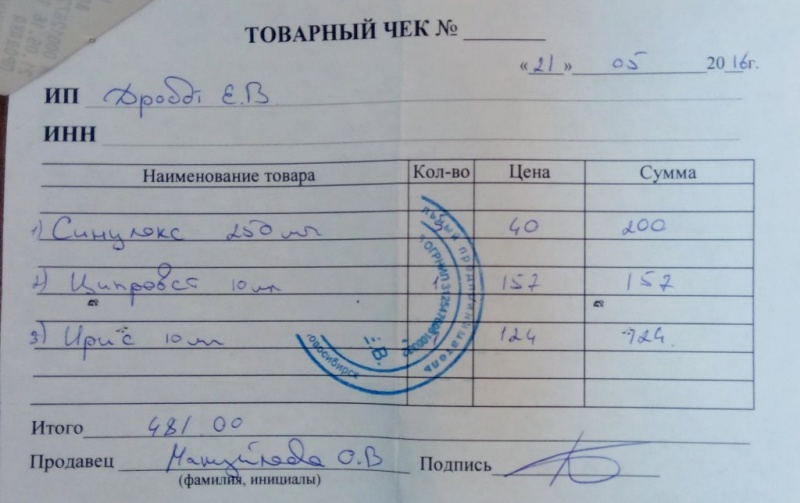 ТОВАРНЫЙ ЧЕК №
«21» 05 2016г.
ИП Дробот Е.В
ИНН
Наименование товара Кол-во Цена Сумма
1) Синулокс 250 мг 5 40 200
2) Ципровет 10 мл 1 157 157
3) Ирис 10 мл 1 124 124
Итого 481 00
Продавец О.В Подпись
(фамилия, инициалы)
предприниматель
ОГРНИП
овосибирск